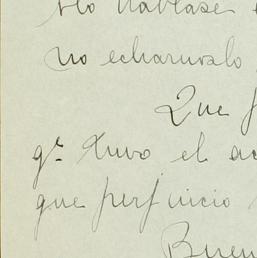 no hablase
no echarnoslo
Que
g.ª tuvo el ac
que perjuicio
Buen